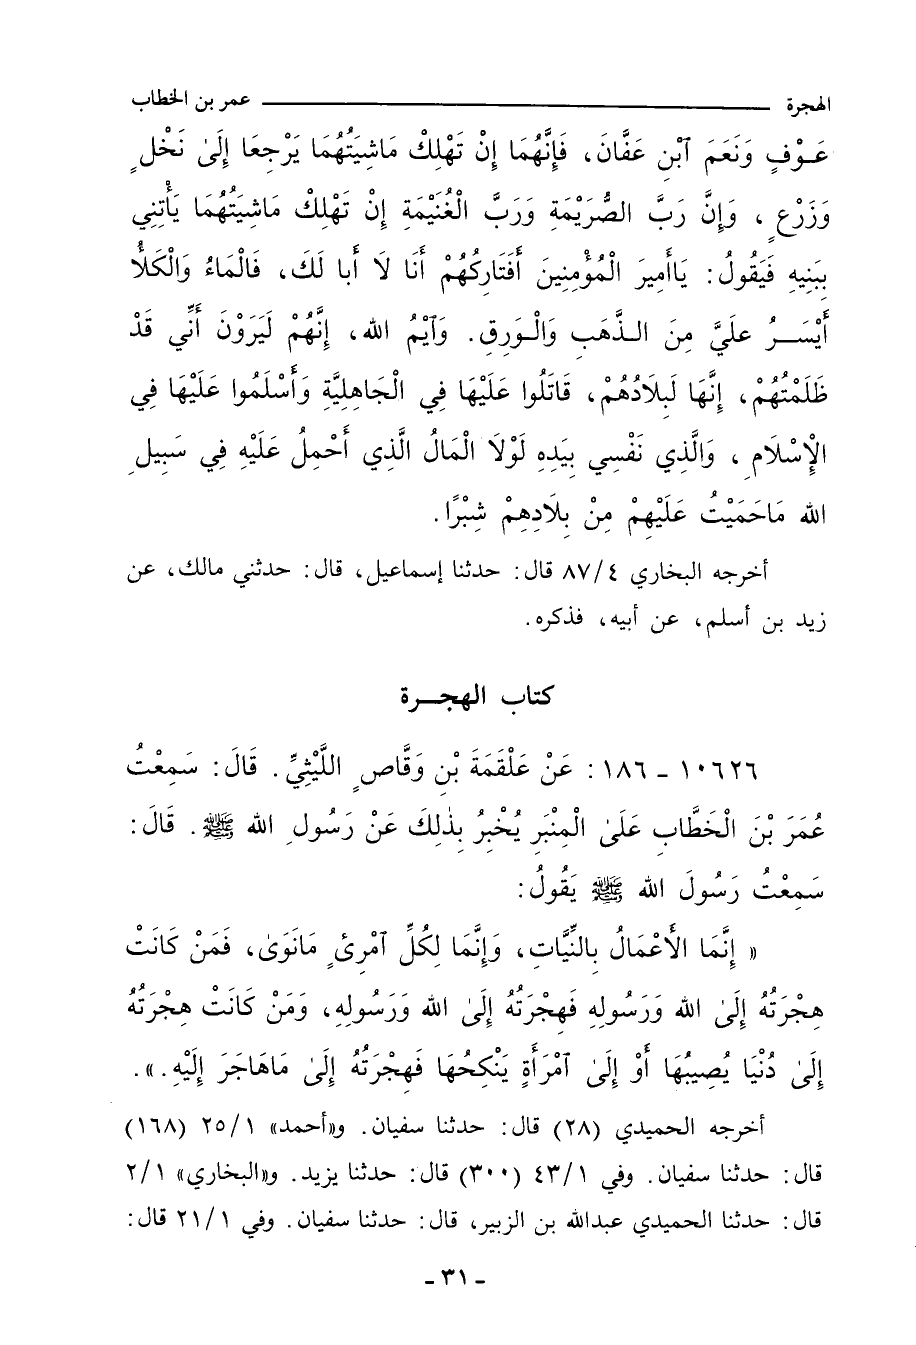 الهجرة ــــــــــــ عمر بن الخطاب
عَوْفٍ وَنَعَمَ ٱبْنِ عَفَّانَ، فَإِنَّهُمَا إِنْ تَهْلِكْ مَاشِيَتُهُمَا يَرْجِعَا إِلَىٰ نَخْلٍ
وَزَرْعٍ، وَإِنَّ رَبَّ الصُّرَيْمَةِ وَرَبَّ الْغُنَيْمَةِ إِنْ تَهْلِكْ مَاشِيَتُهُمَا يَأْتِنِي
بِبَنِيهِ فَيَقُولُ: يَاأَمِيرَ الْمُؤْمِنِينَ أَفَتَارِكُهُمْ أَنَا لَا أَبا لَكَ، فَالْمَاءُ وَالْكَلأُ
أَيْسَرُ عَلَيَّ مِنَ الذَّهَبِ وَالْوَرِقِ. وَٱيْمُ الله، إِنَّهُمْ لَيَرَوْنَ أَنِّي قَدْ
ظَلَمْتُهُمْ، إِنَّهَا لَبِلَادُهُمْ، قَاتَلُوا عَلَيْهَا فِي الْجَاهِلِيَّةِ وَأَسْلَمُوا عَلَيْهَا فِي
الإِسْلَامِ، وَالَّذِي نَفْسِي بِيَدِهِ لَوْلَا الْمَالُ الَّذِي أَحْمِلُ عَلَيْهِ فِي سَبِيلِ
الله مَاحَمَيْتُ عَلَيْهِمْ مِنْ بِلَادِهِمْ شِبْرًا.
أخرجه البخاري ٨٧/٤ قال: حدثنا إسماعيل، قال: حدثني مالك، عن
زيد بن أسلم، عن أبيه، فذكره.
كتاب الهجرة
١٠٦٢٦ - ١٨٦: عَنْ عَلْقَمَةَ بْنِ وَقَّاصٍ اللَّيْثِيِّ. قَالَ: سَمِعْتُ
عُمَرَ بْنَ الْخَطَّابِ عَلَىٰ الْمِنْبَرِ يُخْبِرُ بِذٰلِكَ عَنْ رَسُولِ الله ﷺ. قَالَ:
سَمِعْتُ رَسُولَ الله ﷺ يَقُولُ:
« إِنَّمَا الأَعْمَالُ بِالنِّيَّاتِ، وَإِنَّمَا لِكُلِّ ٱمْرِئٍ مَانَوَىٰ، فَمَنْ كَانَتْ
هِجْرَتُهُ إِلَىٰ الله وَرَسُولِهِ فَهِجْرَتُهُ إِلَىٰ الله وَرَسُولِهِ، وَمَنْ كَانَتْ هِجْرَتُهُ
إِلَىٰ دُنْيَا يُصِيبُهَا أَوْ إِلَىٰ ٱمْرَأَةٍ يَنْكِحُهَا فَهِجْرَتُهُ إِلَىٰ مَاهَاجَرَ إِلَيْهِ.».
أخرجه الحميدي (٢٨) قال: حدثنا سفيان. و«أحمد» ٢٥/١ (١٦٨)
قال: حدثنا سفيان. وفي ٤٣/١ (٣٠٠) قال: حدثنا يزيد. و«البخاري» ٢/١
قال: حدثنا الحميدي عبدالله بن الزبير، قال: حدثنا سفيان. وفي ٢١/١ قال:
- ٣١ -